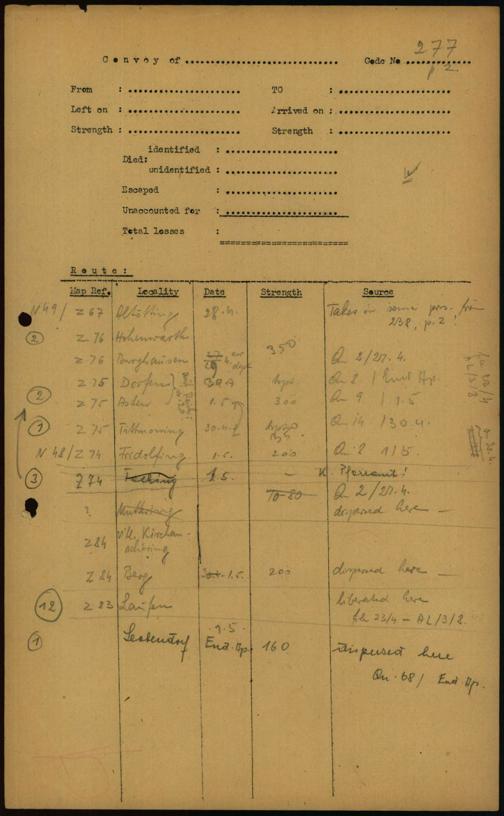 277
p 2
Convoy of .................... Code No ............
From : .................... TO : ....................
Left on : .................... Arrived on : ....................
Strength : .................... Strength : ....................
identified : ....................
Died:
unidentified : ....................
Escaped : ....................
Unaccounted for : ....................
Total losses :
Route:
Map Ref. Locality Date Strength Source
N49/ Z 67 Altötting 28.4. Takes in some pris. from
238, p. 2
② Z 76 Hohenwarth 350
Z 76 Burghausen Qu 2/27.4.
Z 75 Dorfen
② Z 75 Asten 1.5 300 Qu 9 / 1.5
① Z 75 Tittmoning 30.4. Qu 14 /30.4.
N 48/Z 74 Fridolfing 1.5. 200 Qu 2 1/5.
③ Z 74 1.5. -
70-80 Qu 2/27.4.
? dispersed here —
Z 84 Kirchan-
schöring
Z 84 Berg 1.5. 200 dispersed here —
⑫ Z 83 Laufen liberated here
file 23/4 - AL/3/2.
① Leobendorf End Ap. 160 dispersed here
Qu. 68/ End Ap.